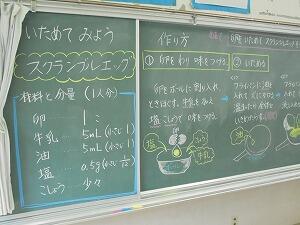 いためて みよう
スクランブルエッグ
材料と分量 (1人分)
卵 …… 1こ
牛乳 …… 5mL (小さじ 1)
油 …… 5mL (小さじ 1)
塩 …… 0.5g (小さじ 1/12)
こしょう 少々
作り方
① 卵をわり 味をつける。
卵をボールに割り入れ
ときほぐす。牛乳を加え
塩、こしょうで 味をつける。
塩
こしょう
牛乳
卵を いためて スクランブルエッグ
② いためる
フライパンに油を
油
フライパンに